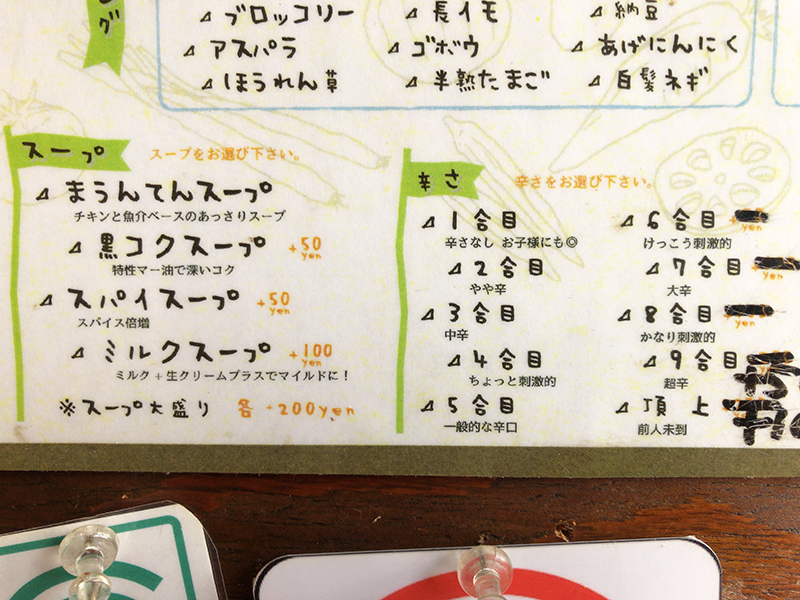 ング
ブロッコリー
長イモ
納豆
アスパラ
ゴボウ
あげにんにく
ほうれん草
半熟たまご
白髪ネギ
スープ
スープをお選び下さい。
まうんてんスープ
チキンと魚介ベースのあっさりスープ
黒コクスープ +50yen
特性マー油で深いコク
スパイスープ +50yen
スパイス倍増
ミルクスープ +100yen
ミルク+生クリームプラスでマイルドに!
※スープ大盛り 各+200yen
辛さ
辛さをお選び下さい。
1合目
辛さなし お子様にも◎
2合目
やや辛
3合目
中辛
4合目
ちょっと刺激的
5合目
一般的な辛口
6合目
けっこう刺激的
7合目
大辛
8合目
かなり刺激的
9合目
超辛
頂上
前人未到